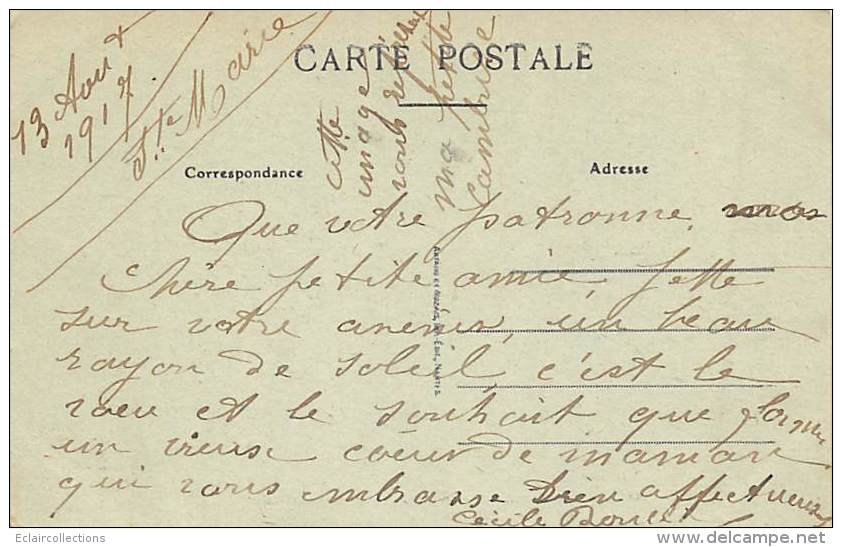 13 Aout
1917
Ste Marie
CARTE POSTALE
cette
image
vous
ma petite
Correspondance
Adresse
Que votre patronne, ma
chère petite amie jette
sur votre avenir, un beau
rayon de soleil, c'est le
voeu et le souhait que forme
un vieux coeur de maman
qui vous embrasse bien affectueusement
Cécile
Eclaircollections
www.delcampe.net